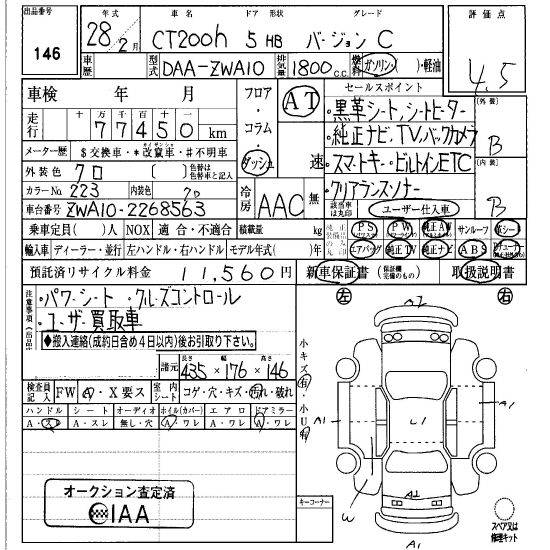 出品番号 年式 車名 ドア 形状 グレード 評価点
146 28年2月 CT200h 5 HB バージョンC 4.5
車歴 型式 DAA-ZWA10 排気量 1800c.c. 燃料 ガソリン・軽油
車検 年 月 フロア・コラム・ダッシュ AT 速 セールスポイント
・黒革シート,シートヒーター 外装 B
走行 十万千百十一 77450km
・純正ナビ,TV,バックカメラ
メーター歴 $交換車・*改竄車・#不明車
・スマートキー・ビルトインETC 内装 B
外装色 クロ ( ) 色替は色替車と記入
・クリアランスソナー
カラーNo. 223 内装色 クロ 冷房 AAC 無 該当車は丸印 ユーザー仕入車
車台番号 ZWA10-2268563
乗車定員( )人 NOX 適合・不適合 積載量 kg
PS PW 純正AW サンルーフ 革シート
輸入車 ディーラー・並行 左ハンドル・右ハンドル モデル年式( )年
エアバック 純正TV 純正ナビ ABS
預託済リサイクル料金 11,560円 新車保証書 (保証欄完備のもの) 取扱説明書
注意事項(出品店)
・パワーシート・クルーズコントロール
・ユーザー買取車
◆搬入連絡(成約日含め4日以内)後お引取り下さい。
諸元 長さ 幅 高さ 435×176×146
検査員記入 FW・X要ス 室内シート コゲ・穴・キズ・汚れ・破れ
ハンドル シート オーディオ ホイル(カバー) エアロ ドアミラー
A・スレ A・スレ 無し・穴 A・ワレ A・ワレ A・ワレ
小キズ有・小U有
左 右
A1 U1 A1
W A1
オークション査定済
IAA
コーナー
スペア又は修理キット